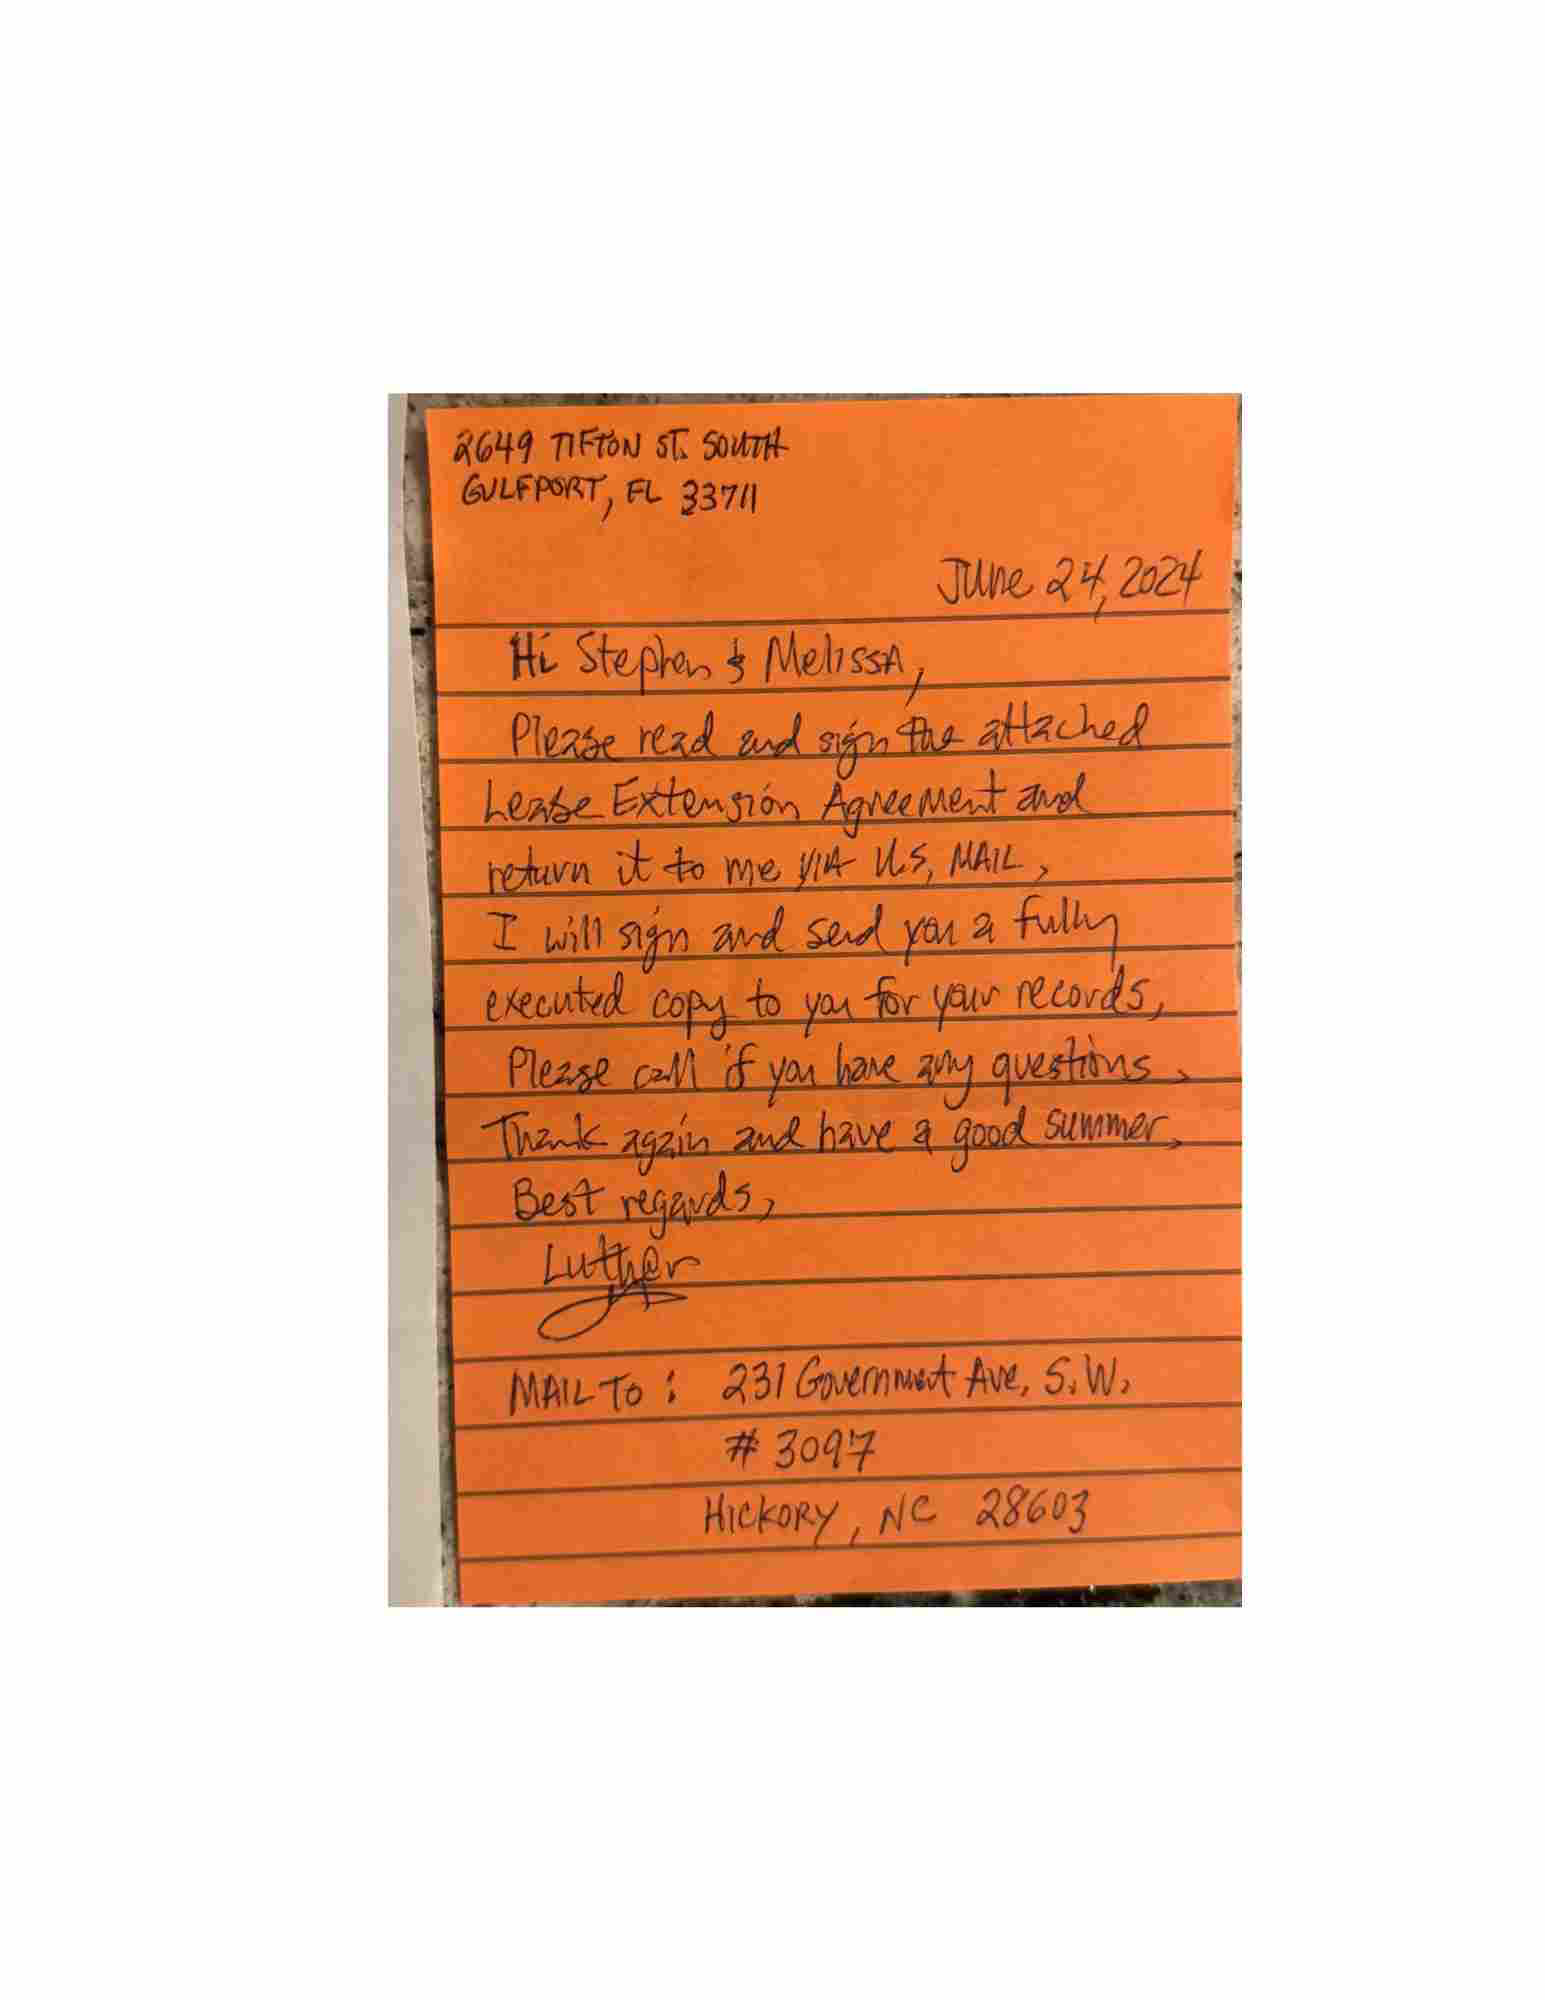 2649 TIFTON ST. SOUTH
GULFPORT, FL 33711
June 24, 2024
Hi Stephen & Melissa,
Please read and sign the attached
Lease Extension Agreement and
return it to me VIA U.S. MAIL.
I will sign and send you a fully
executed copy to you for your records.
Please call if you have any questions.
Thank again and have a good summer.
Best regards,
Luther
MAIL TO: 231 Government Ave. S.W.
# 3097
HICKORY, NC 28603